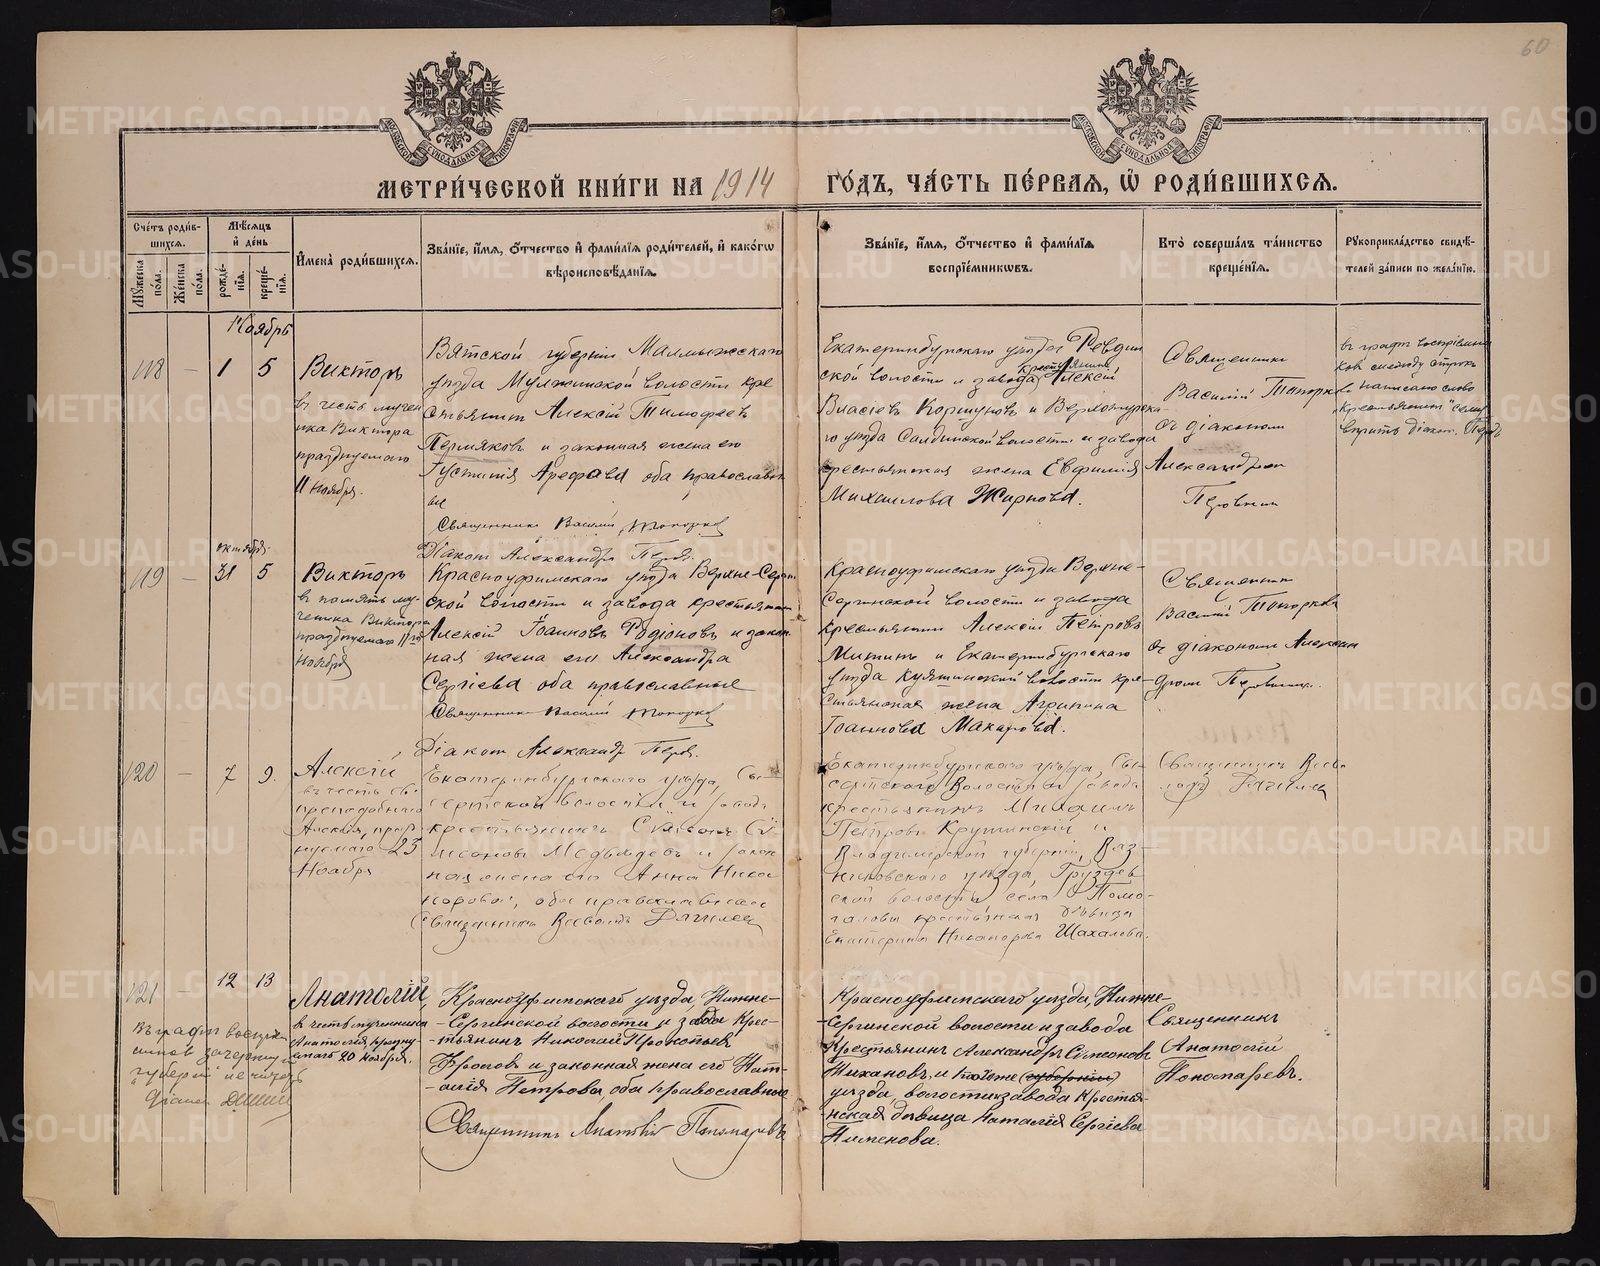 60
МЕТРИ́ЧЕСКОЙ КНИ́ГИ НА 1914 ГО́ДЪ, ЧА́СТЬ ПЕ́РВАЯ, Ѡ РОДИ́ВШИХСЯ.
Сче́тъ роди́в-
шихся.
Мꙋжеска по́ла.
Же́нска по́ла.
Мѣ́сяцъ
и҆ де́нь
рожде́-
нїя.
креще́-
нїя.
И҆мена̀ роди́вшихся.
Зва́нїе, и҆́мя, ѻ҆́тчество и҆ фами́лїя роди́телей, и҆ како́гѡ
вѣроисповѣ́данїя.
Зва́нїе, и҆́мя, ѻ҆́тчество и҆ фами́лїя
воспрїе́мникѡвъ.
Кто̀ соверша́лъ та́инство
креще́нїя.
Рꙋкоприкла́дство свидѣ́-
телей за́писи по жела́нїю.
Ноябрь
118
—
1
5
Викторъ
въ честь мучен
ика Виктора
празднуемаго
11 ноября.
Вятской губерніи Малмыжскаго
уѣзда Мултинской волости кре
стьянинъ Алексій Тимофеевъ
Пермяковъ и законная жена его
Густинія Арефова оба православн
ые
Священникъ Василій Топорковъ
Діаконъ Александръ Перов.
Екатеринбургскаго уѣзда Ревдин
ской волости и завода крестьянинъ Алексій
Власіевъ Коршуновъ и Верхотурска-
го уѣзда Салдинской волости и завода
крестьянская жена Евфимія
Михаилова Жирнова.
Священникъ
Василій Топорков
съ діакономъ
Александром
Перовымъ
въ графѣ воспріемни
ковъ между строкъ
написано слово
"крестьянинъ" сему
вѣрить діакон. Перовъ
октября
119
—
31
5
Викторъ
въ память му-
ченика Виктора
празднуемаго 11го
ноября
Красноуфимскаго уѣзда Верхне-Серги
ской волости и завода крестьянинъ
Алексій Іоанновъ Родіоновъ и закон
ная жена его Александра
Сергіева оба православные
Священникъ Василій Топорков
Діаконъ Александръ Перов.
Красноуфимскаго уѣзда Верхне-
Сергинской волости и завода
крестьянинъ Алексій Петровъ
Митинъ и Екатеринбургскаго
уѣзда волости кре-
стьянская жена Агрипина
Іоаннова Макарова.
Священникъ
Василій Топорковъ
съ діакономъ Алексан
дромъ Перовымъ.
120
—
7
9.
Алексій
въ честь св.
преподобнаго
Алексія, празд
нуемаго 23
Ноября
Екатеринбургскаго уѣзда, Сы-
сертской волости и завода
крестьянинъ Симеонъ Си
меоновъ Медвѣдевъ и закон
ная жена его Анна Ника
норова, оба православные
Священникъ Всеволодъ Дягилев
Екатеринбургскаго уѣзда, Сы-
сертской волости и завода
крестьянинъ Михаилъ
Петровъ Крутинскій и
Владимірской губерніи, Вяз-
никовскаго уѣзда, Груздев
ской волости села
крестьянская дѣвица
Екатерина Никанорова Шахалова.
Священникъ Всево
лодъ Дягилев
121
—
12
13
Анатолій
въ честь мученика
Анатолія, праздну
емаго 20 ноября.
Въ графѣ воспріем
никовъ зачеркнуто
"губерніи" не читать
Красноуфимскаго уѣзда, Нижне-
-Сергинской волости и завода Крес-
-тьянинъ Николай Прокопьевъ
Фроловъ и законная жена его Ната-
-лія Петрова, оба православные
Священникъ Анатолій Пономаревъ
Красноуфимскаго уѣзда, Нижне-
-Сергинской волости и завода
Крестьянинъ Александръ Симеоновъ
Пихановъ, и того же (губерніи)
уѣзда, волости и завода Крестья-
нская дѣвица Наталія Сергіева
Пименова.
Священникъ
Анатолій
Пономаревъ.